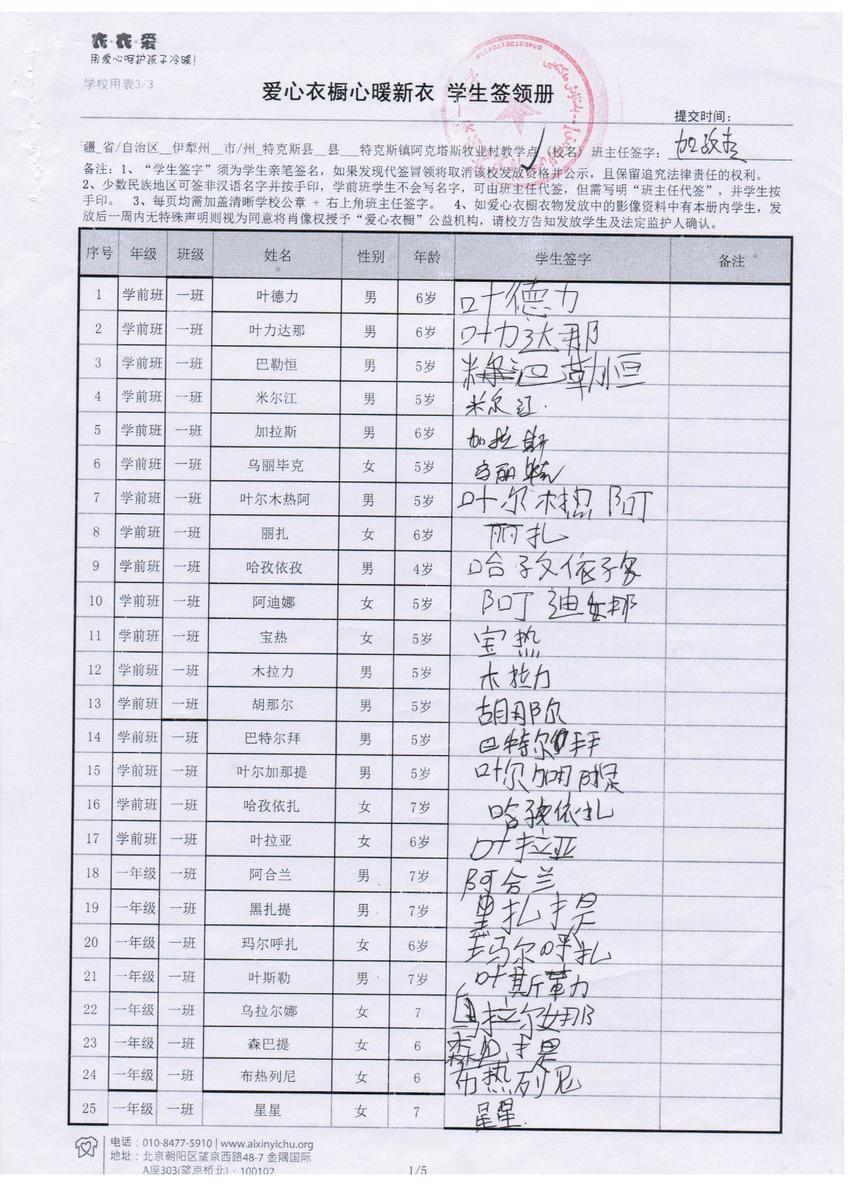 衣·衣·爱
用爱心呵护孩子冷暖!
学校用表3/3
爱心衣橱心暖新衣 学生签领册
提交时间:
疆_省/自治区__伊犁州__市/州_特克斯县__县___特克斯镇阿克塔斯牧业村教学点 (校名) 班主任签字:
备注: 1、“学生签字”须为学生亲笔签名, 如果发现代签冒领将取消该校发放资格并公示, 且保留追究法律责任的权利。
2、少数民族地区可签非汉语名字并按手印, 学前班学生不会写名字, 可由班主任代签, 但需写明“班主任代签”, 并学生按
手印。 3、每页均需加盖清晰学校公章 + 右上角班主任签字。 4、如爱心衣橱衣物发放中的影像资料中有本册内学生, 发
放后一周内无特殊声明则视为同意将肖像权授予“爱心衣橱”公益机构, 请校方告知发放学生及法定监护人确认。
序号 年级 班级 姓名 性别 年龄 学生签字 备注
1 学前班 一班 叶德力 男 6岁 叶德力
2 学前班 一班 叶力达那 男 6岁 叶力达那
3 学前班 一班 巴勒恒 男 5岁 巴勒恒
4 学前班 一班 米尔江 男 5岁 米尔江.
5 学前班 一班 加拉斯 男 6岁 加拉斯
6 学前班 一班 乌丽毕克 女 5岁 乌丽毕克
7 学前班 一班 叶尔木热阿 男 5岁 叶尔木热阿
8 学前班 一班 丽扎 女 6岁 丽扎
9 学前班 一班 哈孜依孜 男 4岁 哈孜依孜
10 学前班 一班 阿迪娜 女 5岁 阿迪娜
11 学前班 一班 宝热 女 5岁 宝热
12 学前班 一班 木拉力 男 5岁 木拉力
13 学前班 一班 胡那尔 男 5岁 胡那尔
14 学前班 一班 巴特尔拜 男 5岁 巴特尔拜
15 学前班 一班 叶尔加那提 男 5岁 叶尔加那提
16 学前班 一班 哈孜依扎 女 7岁 哈孜依扎
17 学前班 一班 叶拉亚 女 6岁 叶拉亚
18 一年级 一班 阿合兰 男 7岁 阿合兰
19 一年级 一班 黑扎提 男 7岁 黑扎提
20 一年级 一班 玛尔呼扎 女 6岁 玛尔呼扎
21 一年级 一班 叶斯勒 男 7岁 叶斯勒
22 一年级 一班 乌拉尔娜 女 7 乌拉尔娜
23 一年级 一班 森巴提 女 6 森巴提
24 一年级 一班 布热列尼 女 6 布热列尼
25 一年级 一班 星星 女 7 星星.
电话 : 010-8477-5910 | www.aixinyichu.org
地址 : 北京朝阳区望京西路48-7 金隅国际
A座303(望京桥北) · 100102
1/5